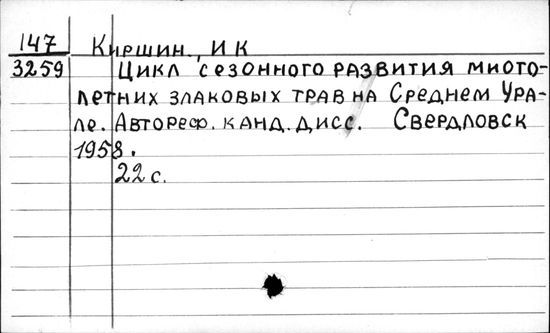 147 Киршин, И К
3259 Цикл сезонного развития много-
летних злаковых трав на Среднем Ура-
ле. Автореф. канд. дисс. Свердловск
1958.
22 с.